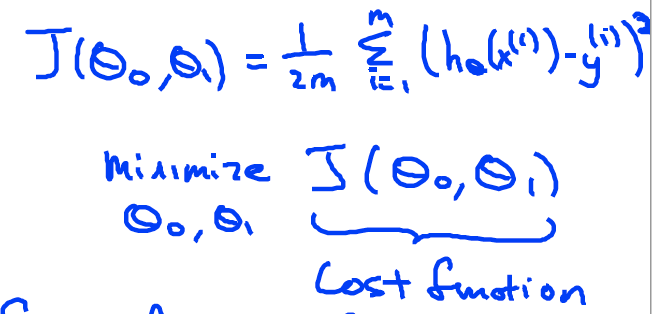 J(θ₀,θ₁) = 1/2m Σᵢ₌₁ᵐ (hθ(x⁽ⁱ⁾)-y⁽ⁱ⁾)²
minimize J(θ₀,θ₁)
θ₀,θ₁
Cost function